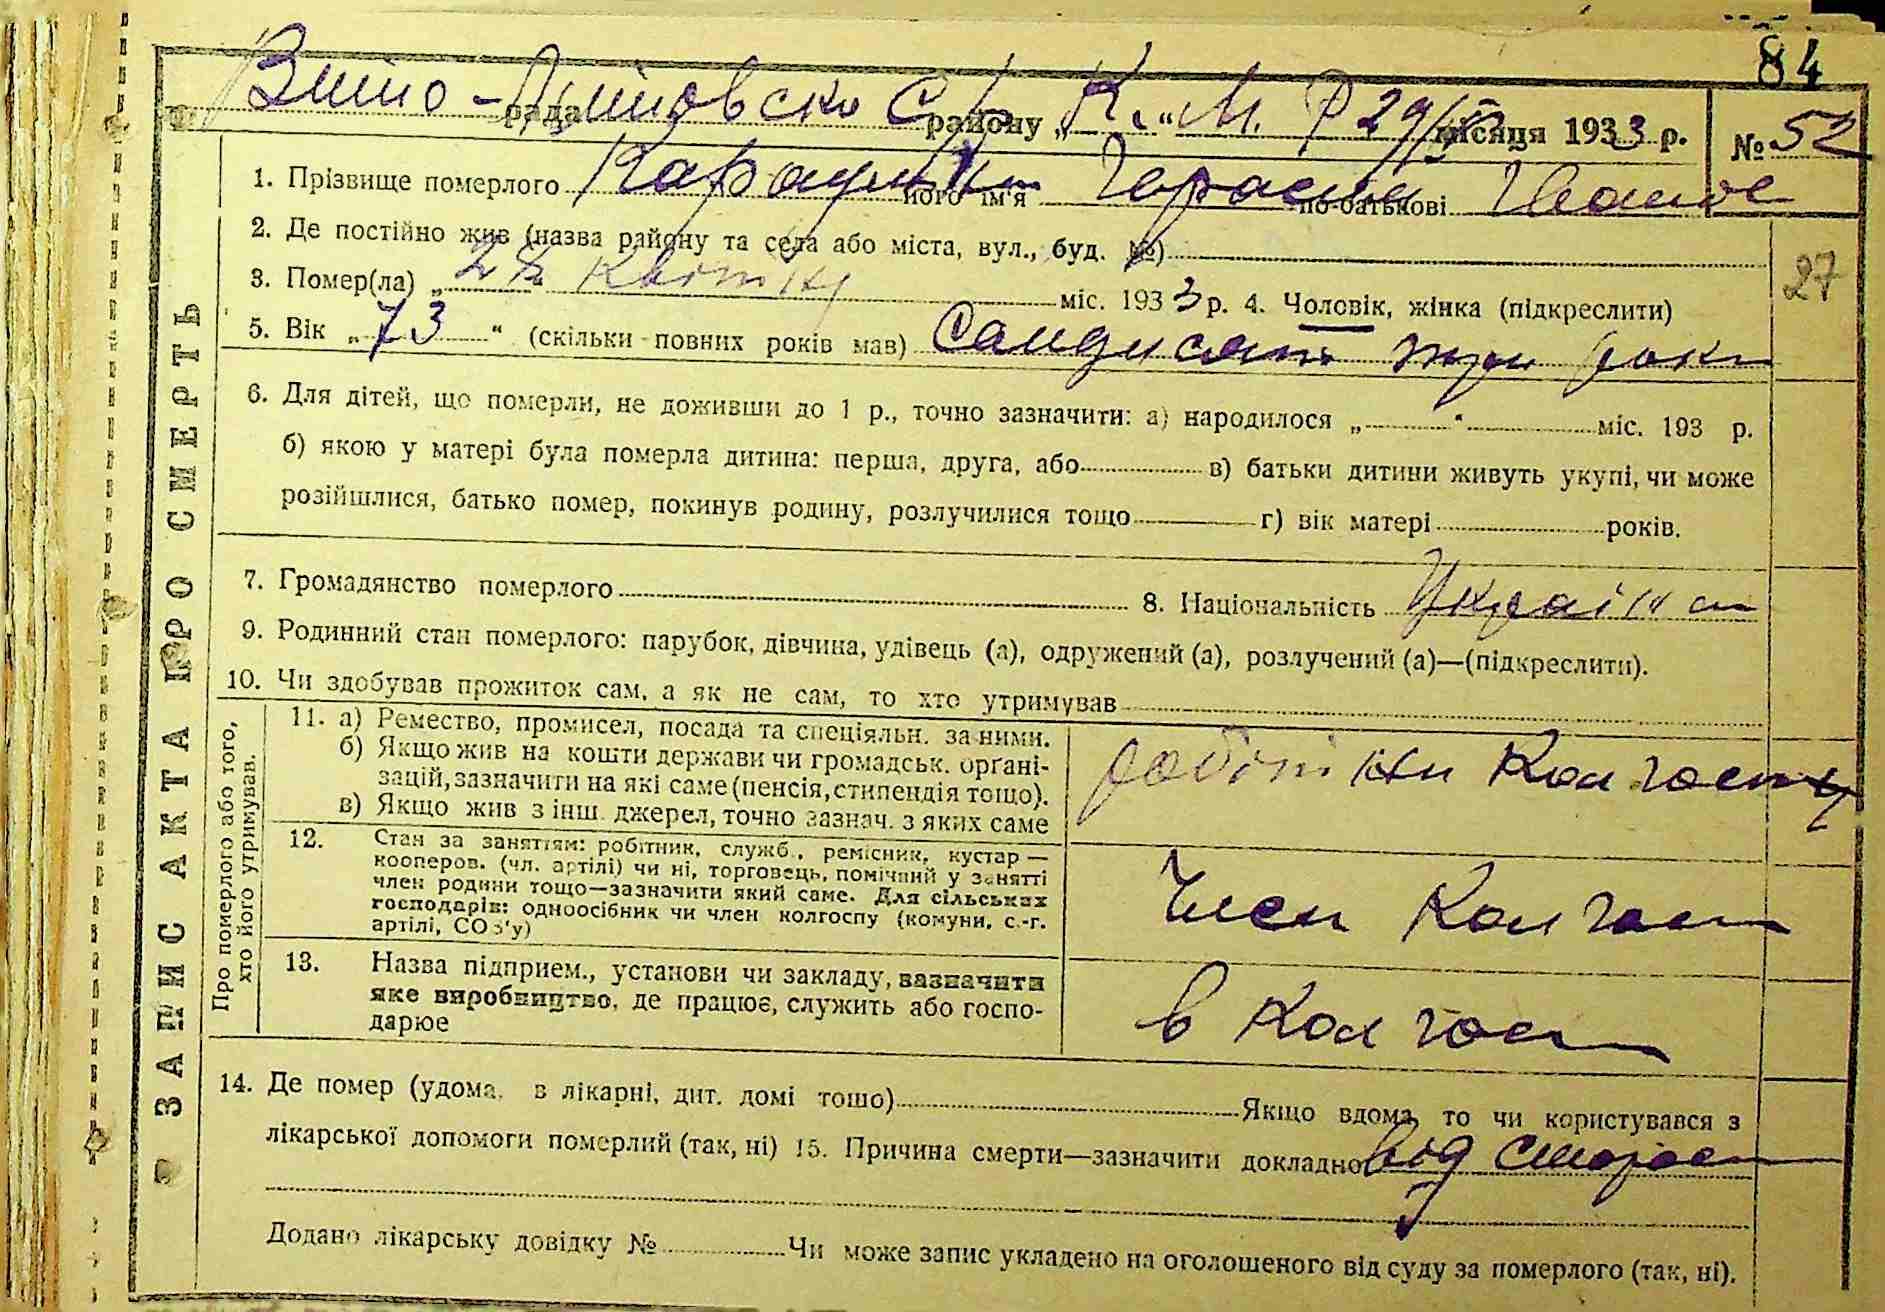 84
рада району „ “ Р 29/IV місяця 1933 р. № 52
1. Прізвище померлого його ім'я Герасим по-батькові Іванов
2. Де постійно жив (назва району та села або міста, вул., буд. №)
27
3. Помер(ла) „ 28 Квітня міс. 1933 р. 4. Чоловік, жінка (підкреслити)
5. Вік „ 73 “ (скільки повних років мав) Симдисят три роки
6. Для дітей, що померли, не доживши до 1 р., точно зазначити: а) народилося „ “ міс. 193 р.
б) якою у матері була померла дитина: перша, друга, або в) батьки дитини живуть укупі, чи може
розійшлися, батько помер, покинув родину, розлучилися тощо г) вік матері років.
7. Громадянство померлого 8. Національність
9. Родинний стан померлого: парубок, дівчина, удівець (а), одружений (а), розлучений (а)—(підкреслити).
10. Чи здобував прожиток сам, а як не сам, то хто утримував
ЗАПИС АКТА ПРО СМЕРТЬ
Про померлого або того,
хто його утримував.
11. а) Ремество, промисел, посада та спеціяльн. за ними.
б) Якщо жив на кошти держави чи громадськ. орґані-
зацій, зазначити на які саме (пенсія, стипендія тощо).
в) Якщо жив з інш. джерел, точно зазнач. з яких саме
робітник Колгоспу
12. Стан за заняттям: робітник, служб., ремісник, кустар —
кооперов. (чл. артілі) чи ні, торговець, помічний у занятті
член родини тощо—зазначити який саме. Для сільських
господарів: одноосібник чи член колгоспу (комуни, с.-г.
артілі, СОЗ'у)
Член Колгосп
13. Назва підприєм., установи чи закладу, зазначити
яке виробництво, де працює, служить або госпо-
дарює
в Колгосп
14. Де помер (удома, в лікарні, дит. домі тощо) Якщо вдома, то чи користувався з
лікарської допомоги померлий (так, ні) 15. Причина смерти—зазначити докладно від старост
Додано лікарську довідку № Чи може запис укладено на оголошеного від суду за померлого (так, ні).